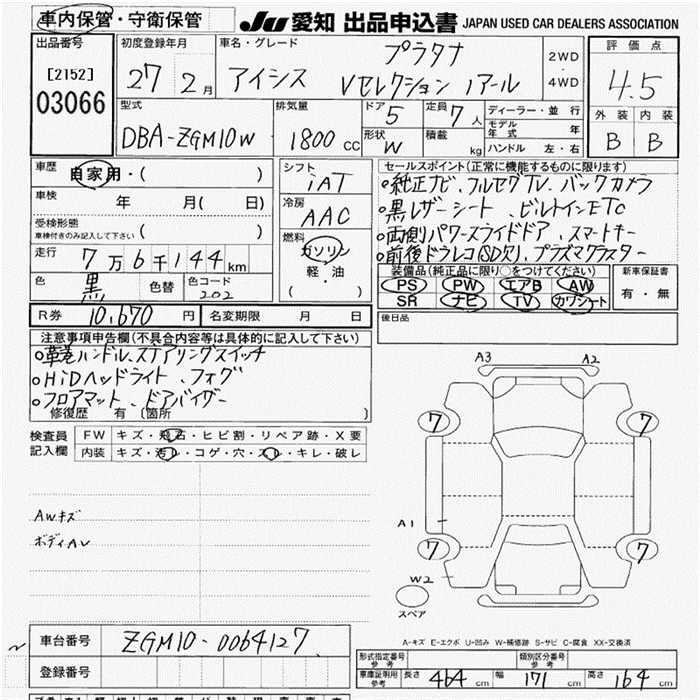 車内保管・守衛保管 JU 愛知 出品申込書 JAPAN USED CAR DEALERS ASSOCIATION
出品番号 初度登録年月 車名・グレード 評価点
[2152] 27年 2月 アイシス プラタナ Vセレクション ノアール 2WD・4WD 4.5
03066
型式 排気量 ドア 5 定員 7人 ディーラー・並行 外装 内装
DBA-ZGM10W 1800cc 形状 W 積載 kg モデル年式 年 B B
ハンドル 左・右
車歴 自家用・( ) シフト iAT セールスポイント(正常に機能するものに限ります)
車検 年 月( 日) 冷房 AAC 純正ナビ、フルセグTV、バックカメラ
受検形態 ( ) 黒レザーシート、ビルトインETC
車検付きのみ記入して下さい
走行 7万6千144km 燃料 ガソリン 両側パワースライドドア、スマートキー
軽・油 前後ドラレコ(SD欠)、プラズマクラスター
( )
色 黒 色替 色コード 202 装備品(純正品に限り○をつけてください) 新車保証書
PS PW エアB AW 有・無
SR ナビ TV カワシート
R券 10,670円 名変期限 月 日 後日品
注意事項申告欄(不具合内容等は具体的に記入して下さい)
革巻ハンドル、ステアリングスイッチ
HiDヘッドライト、フォグ
フロアマット、ドアバイザー
修復歴 有 〔箇所 〕
検査員記入欄 FW キズ・飛石・ヒビ割・リペア跡・X要
内装 キズ・汚レ・コゲ・穴・スレ・キレ・破レ
A3 A2
7 7
AWキズ
ボディAU
A1
7 7
W2
スペア
A-キズ E-エクボ U-凹み W-補修跡 S-サビ C-腐食 XX-交換済
車台番号 ZGM10-0064127
登録番号
形式指定番号 参考 類別区分番号 参考
車庫証明用 参考 長さ 464cm 幅 171cm 高さ 164cm